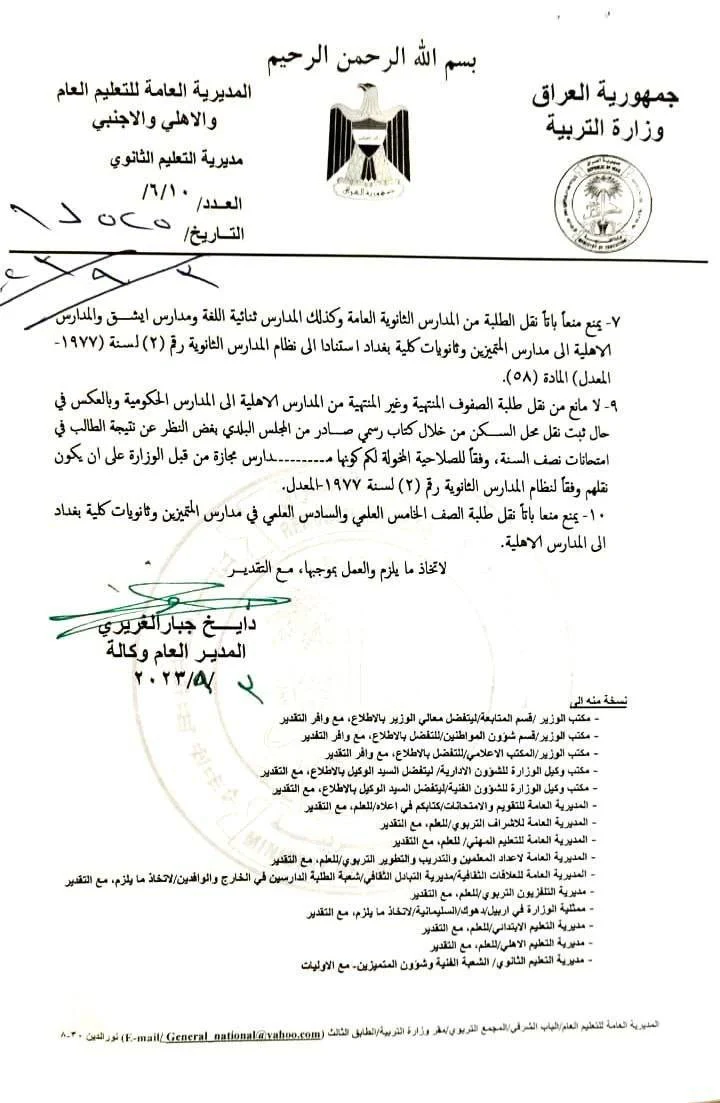 بسم الله الرحمن الرحيم
جمهورية العراق
وزارة التربية
المديرية العامة للتعليم العام
والاهلي والاجنبي
مديرية التعليم الثانوي
العدد/ ٦/١٠/
التاريخ/
جمهورية العراق
REPUBLIC OF IRAQ
MINISTRY OF EDUCATION
٧- يمنع منعاً باتاً نقل الطلبة من المدارس الثانوية العامة وكذلك المدارس ثنائية اللغة ومدارس ايشق والمدارس
الاهلية الى مدارس المتميزين وثانويات كلية بغداد استنادا الى نظام المدارس الثانوية رقم (٢) لسنة (١٩٧٧-
المعدل) المادة (٥٨).
٩- لا مانع من نقل طلبة الصفوف المنتهية وغير المنتهية من المدارس الاهلية الى المدارس الحكومية وبالعكس في
حال ثبت نقل محل السكن من خلال كتاب رسمي صادر من المجلس البلدي بغض النظر عن نتيجة الطالب في
امتحانات نصف السنة، وفقاً للصلاحية المخولة لكم كونها مدارس مجازة من قبل الوزارة على ان يكون
نقلهم وفقاً لنظام المدارس الثانوية رقم (٢) لسنة ١٩٧٧-المعدل.
١٠- يمنع منعا باتاً نقل طلبة الصف الخامس العلمي والسادس العلمي في مدارس المتميزين وثانويات كلية بغداد
الى المدارس الاهلية.
لاتخاذ ما يلزم والعمل بموجبها، مع التقدير
دايخ جبار الغريري
المدير العام وكالة
٢٠٢٣/
نسخة منه الى
- مكتب الوزير /قسم المتابعة/ليتفضل معالي الوزير بالاطلاع، مع وافر التقدير
- مكتب الوزير/قسم شؤون المواطنين/للتفضل بالاطلاع، مع وافر التقدير
- مكتب الوزير/المكتب الاعلامي/للتفضل بالاطلاع، مع وافر التقدير
- مكتب وكيل الوزارة للشؤون الادارية/ ليتفضل السيد الوكيل بالاطلاع، مع التقدير
- مكتب وكيل الوزارة للشؤون الفنية/ليتفضل السيد الوكيل بالاطلاع، مع التقدير
- المديرية العامة للتقويم والامتحانات/كتابكم في اعلاه/للعلم، مع التقدير
- المديرية العامة للاشراف التربوي/للعلم، مع التقدير
- المديرية العامة للتعليم المهني/ للعلم، مع التقدير
- المديرية العامة لاعداد المعلمين والتدريب والتطوير التربوي/للعلم، مع التقدير
- المديرية العامة للعلاقات الثقافية/مديرية التبادل الثقافي/شعبة الطلبة الدارسين في الخارج والوافدين/لاتخاذ ما يلزم، مع التقدير
- مديرية التلفزيون التربوي/للعلم، مع التقدير
- ممثلية الوزارة في اربيل/دهوك/السليمانية/لاتخاذ ما يلزم، مع التقدير
- مديرية التعليم الابتدائي/للعلم، مع التقدير
- مديرية التعليم الاهلي/للعلم، مع التقدير
- مديرية التعليم الثانوي/ الشعبة الفنية وشؤون المتميزين- مع الاوليات
المديرية العامة للتعليم العام/الباب الشرقي/المجمع التربوي/مقر وزارة التربية/الطابق الثالث (E-mail/ General_national@yahoo.com) نورالدين ٣٠-٨